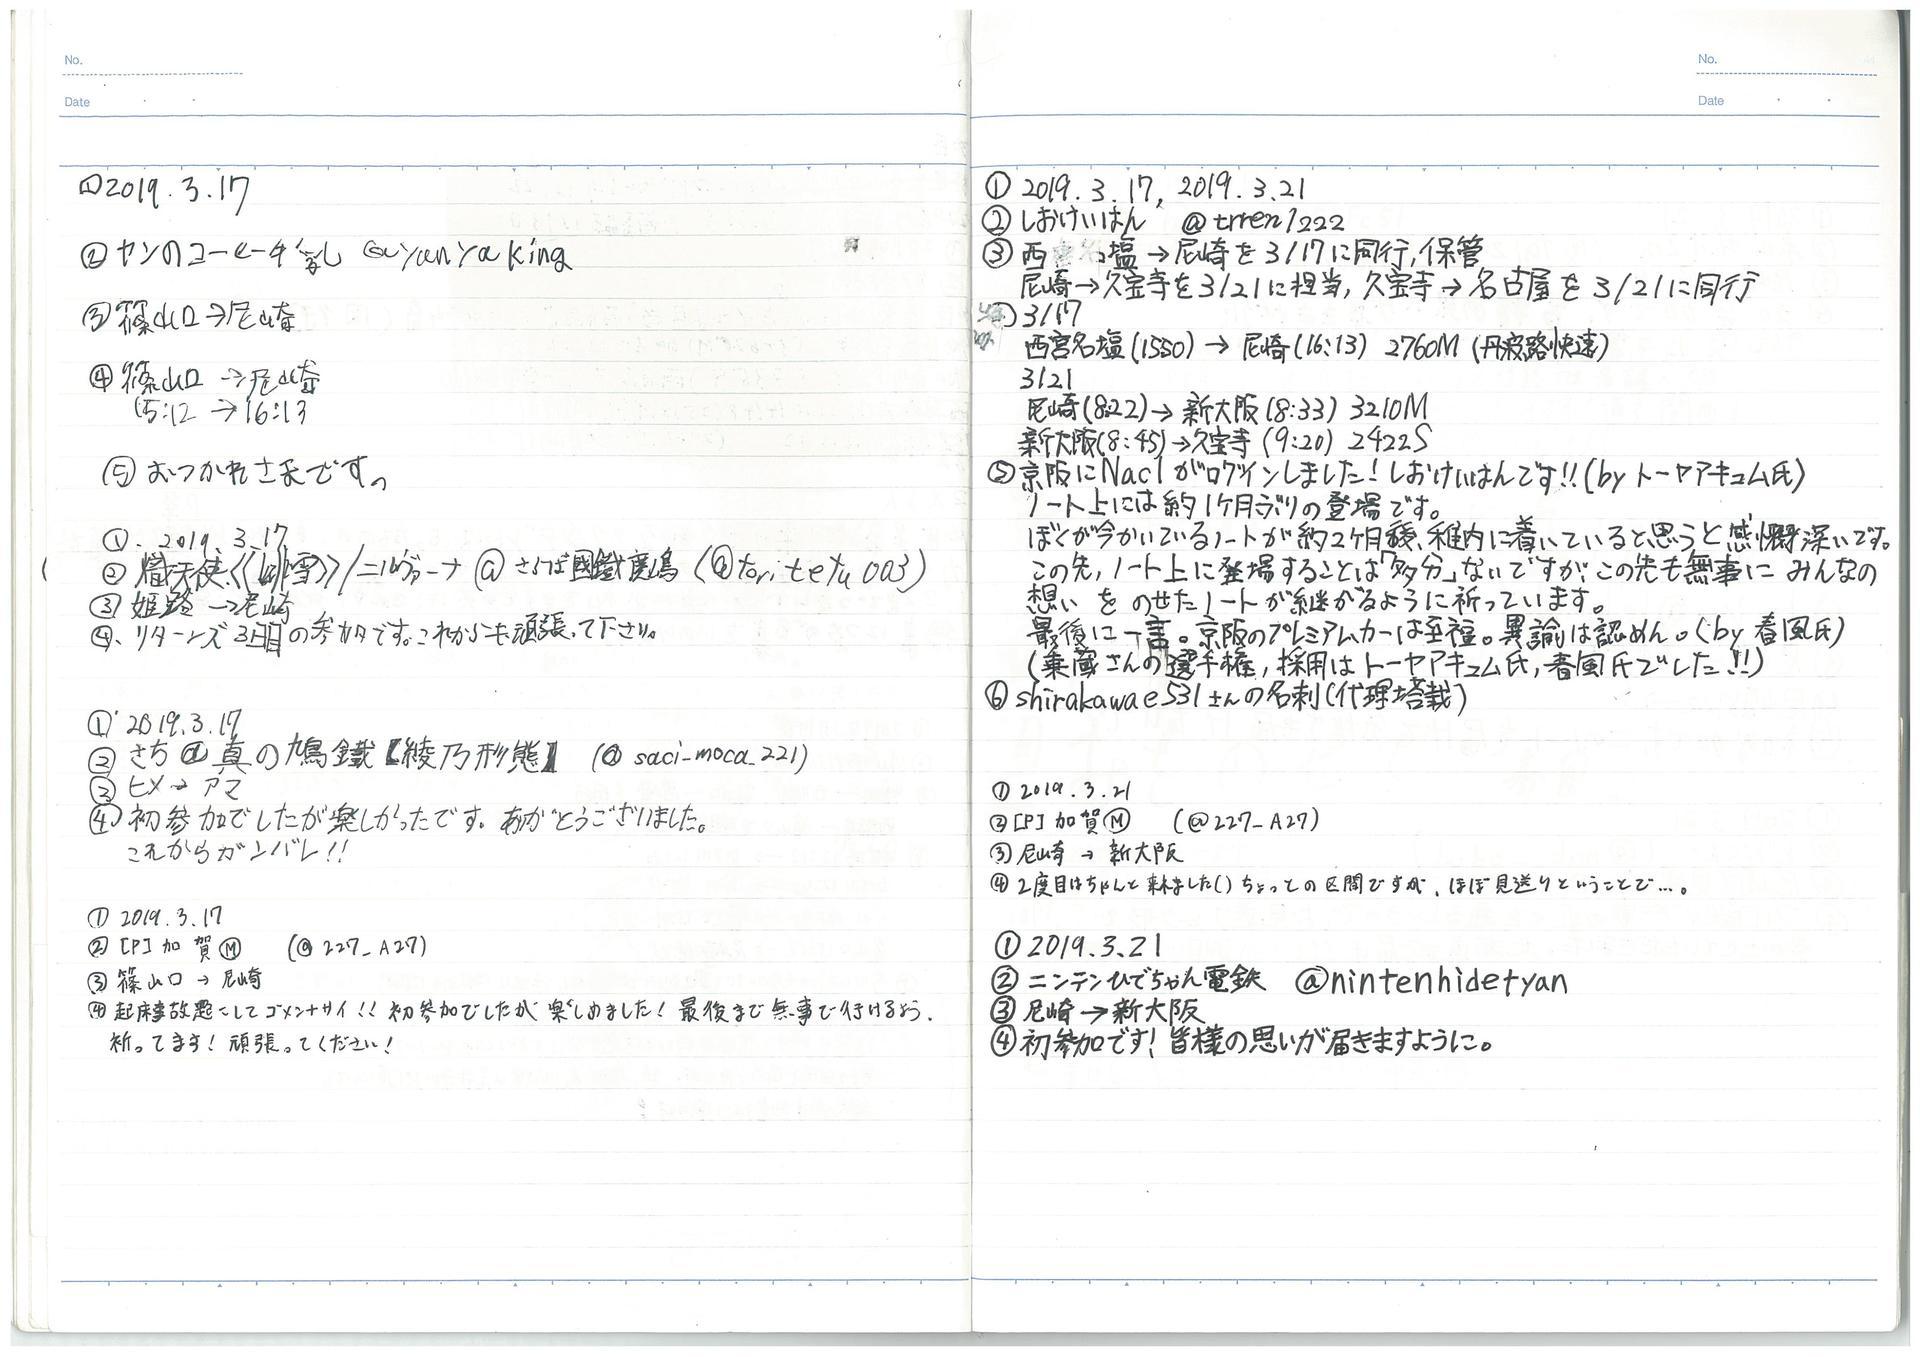 No.
Date
①2019.3.17
②ヤンのコーヒー牛乳 @yanyaking
③篠山口→尼崎
④篠山口→尼崎
15:12→16:13
⑤おつかれさまです。
①. 2019.3.17
②熾天使《吹雪》/ニルヴァーナ@さらば國鐵廣島(@toritetu003)
③姫路→尼崎
④、リターンズ3日目の参加です。これからも頑張って下さい。
①2019.3.17
②さち@真の鳩鐵【綾乃形態】 (@saci_moca_221)
③ヒメ→アマ
④初参加でしたが楽しかったです。ありがとうございました。
これからガンバレ!!
①2019.3.17
②[P]加賀Ⓜ (@227_A27)
③篠山口→尼崎
④起床事故題にしてゴメンナサイ!! 初参加でしたが楽しめました! 最後まで無事で行けるよう、
祈ってます! 頑張ってください!
No.
Date
①2019.3.17, 2019.3.21
②しおけいはん @trren1222
③西 塩→尼崎を3/17に同行,保管
尼崎→久宝寺を3/21に担当, 久宝寺→名古屋を3/21に同行
3/17
西宮名塩(1550)→尼崎(16:13) 2760M(丹波路快速)
3/21
尼崎(8:22)→新大阪(8:33) 3210M
新大阪(8:45)→久宝寺(9:20) 2422S
⑤京阪にNaClがログインしました!しおけいはんです!!(byトーヤアキュム氏)
ノート上には約1ケ月ぶりの登場です。
ぼくが今かいているノートが約2ケ月後、稚内に着いていると思うと感慨深いです。
この先,ノート上に登場することは「多分」ないですが、この先も無事にみんなの
想いをのせたノートが継がるように祈っています。
最後に一言。京阪のプレミアムカーは至福。異論は認めん。(by春風氏)
(乗蔵さんの選手権,採用はトーヤアキュム氏,春風氏でした!!)
⑥shirakawae531さんの名刺(代理搭載)
①2019.3.21
②[P]加賀Ⓜ (@227_A27)
③尼崎→新大阪
④2度目はちゃんと来れました()ちょっとの区間ですが、ほぼ見送りということで…。
①2019.3.21
②ニンテンひでちゃん電鉄 @nintenhidetyan
③尼崎→新大阪
④初参加です!皆様の思いが届きますように。